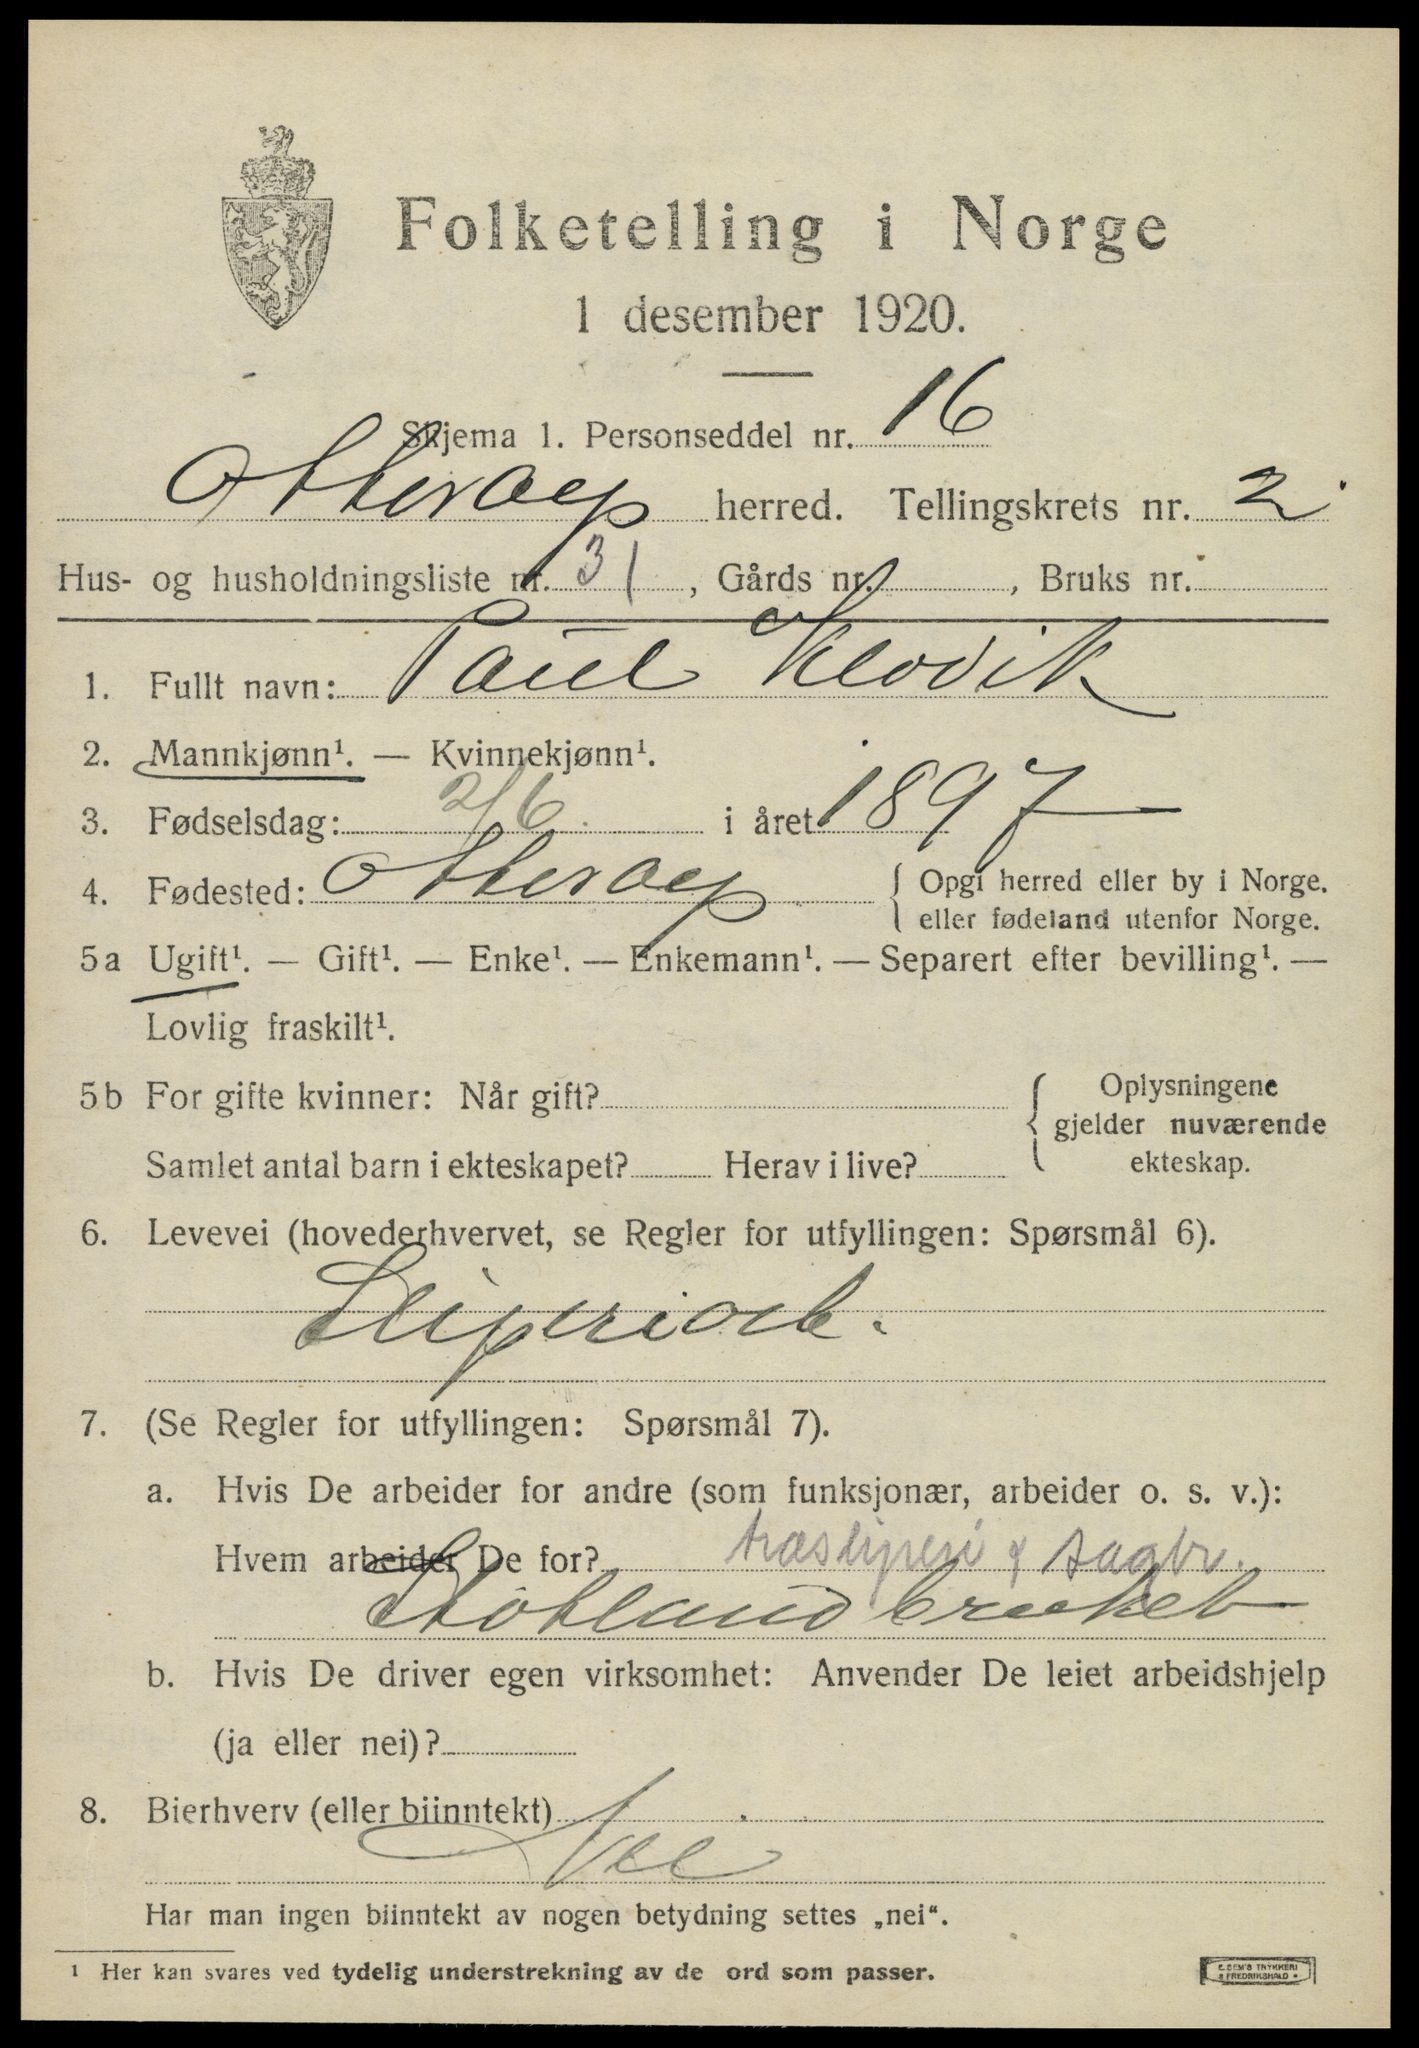 Folketelling i Norge
1 desember 1920.
Skjema 1. Personseddel nr. 16
Otterøy herred. Tellingskrets nr. 2
Hus- og husholdningsliste nr. 31, Gårds nr. , Bruks nr.
1. Fullt navn: Paul Klovik
2. Mannkjønn¹. — Kvinnekjønn¹.
3. Fødselsdag: 2/6 i året 1897
4. Fødested: Otterøy { Opgi herred eller by i Norge.
eller fødeland utenfor Norge.
5a Ugift¹. — Gift¹. — Enke¹. — Enkemann¹. — Separert efter bevilling¹. —
Lovlig fraskilt¹.
5b For gifte kvinner: Når gift? { Oplysningene
gjelder nuværende
Samlet antal barn i ekteskapet? Herav i live? ekteskap.
6. Levevei (hovederhvervet, se Regler for utfyllingen: Spørsmål 6).
Sliperiarb.
7. (Se Regler for utfyllingen: Spørsmål 7).
a. Hvis De arbeider for andre (som funksjonær, arbeider o. s. v.):
Hvem arbeider De for? træsliperi & sagbr.
bruket
b. Hvis De driver egen virksomhet: Anvender De leiet arbeidshjelp
(ja eller nei)?
8. Bierhverv (eller biinntekt)
Nei
Har man ingen biinntekt av nogen betydning settes „nei“.
¹ Her kan svares ved tydelig understrekning av de ord som passer.
E. SEM'S TRYKKERI
FREDRIKSHALD